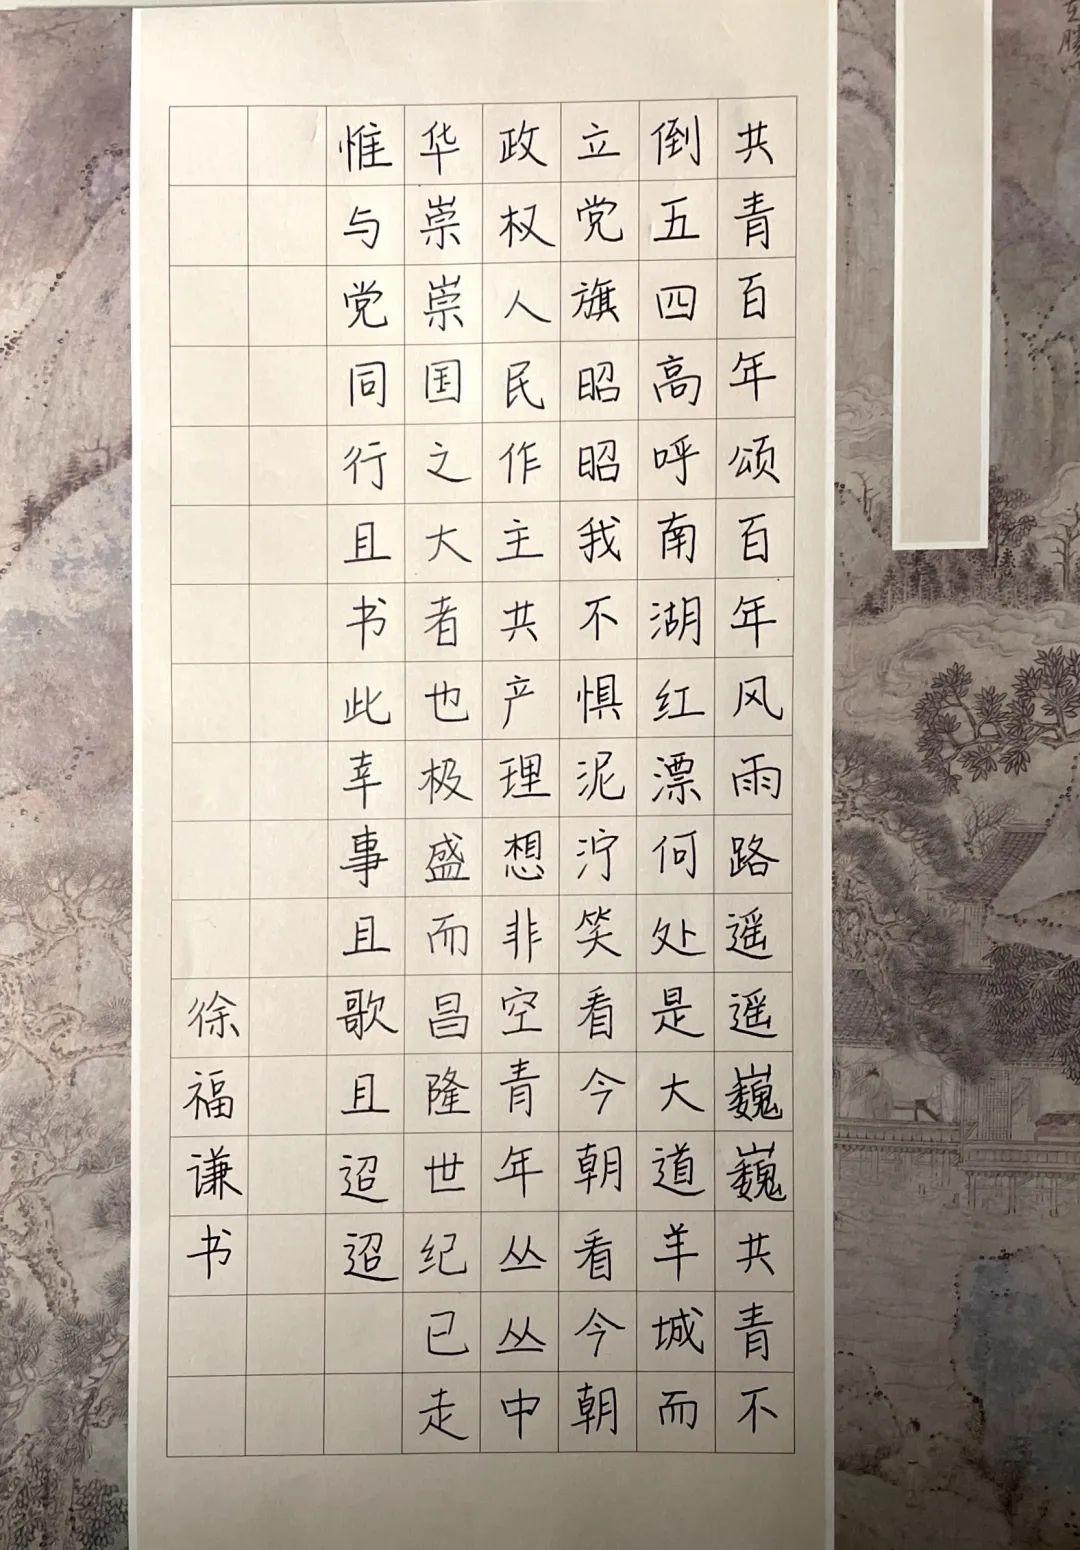 共青百年颂百年风雨路遥遥巍巍共青不
倒五四高呼南湖红漂何处是大道羊城而
立党旗昭昭我不惧泥泞笑看今朝看今朝
政权人民作主共产理想非空青年丛丛中
华崇崇国之大者也极盛而昌隆世纪已走
惟与党同行且书此幸事且歌且迢迢
徐福谦书